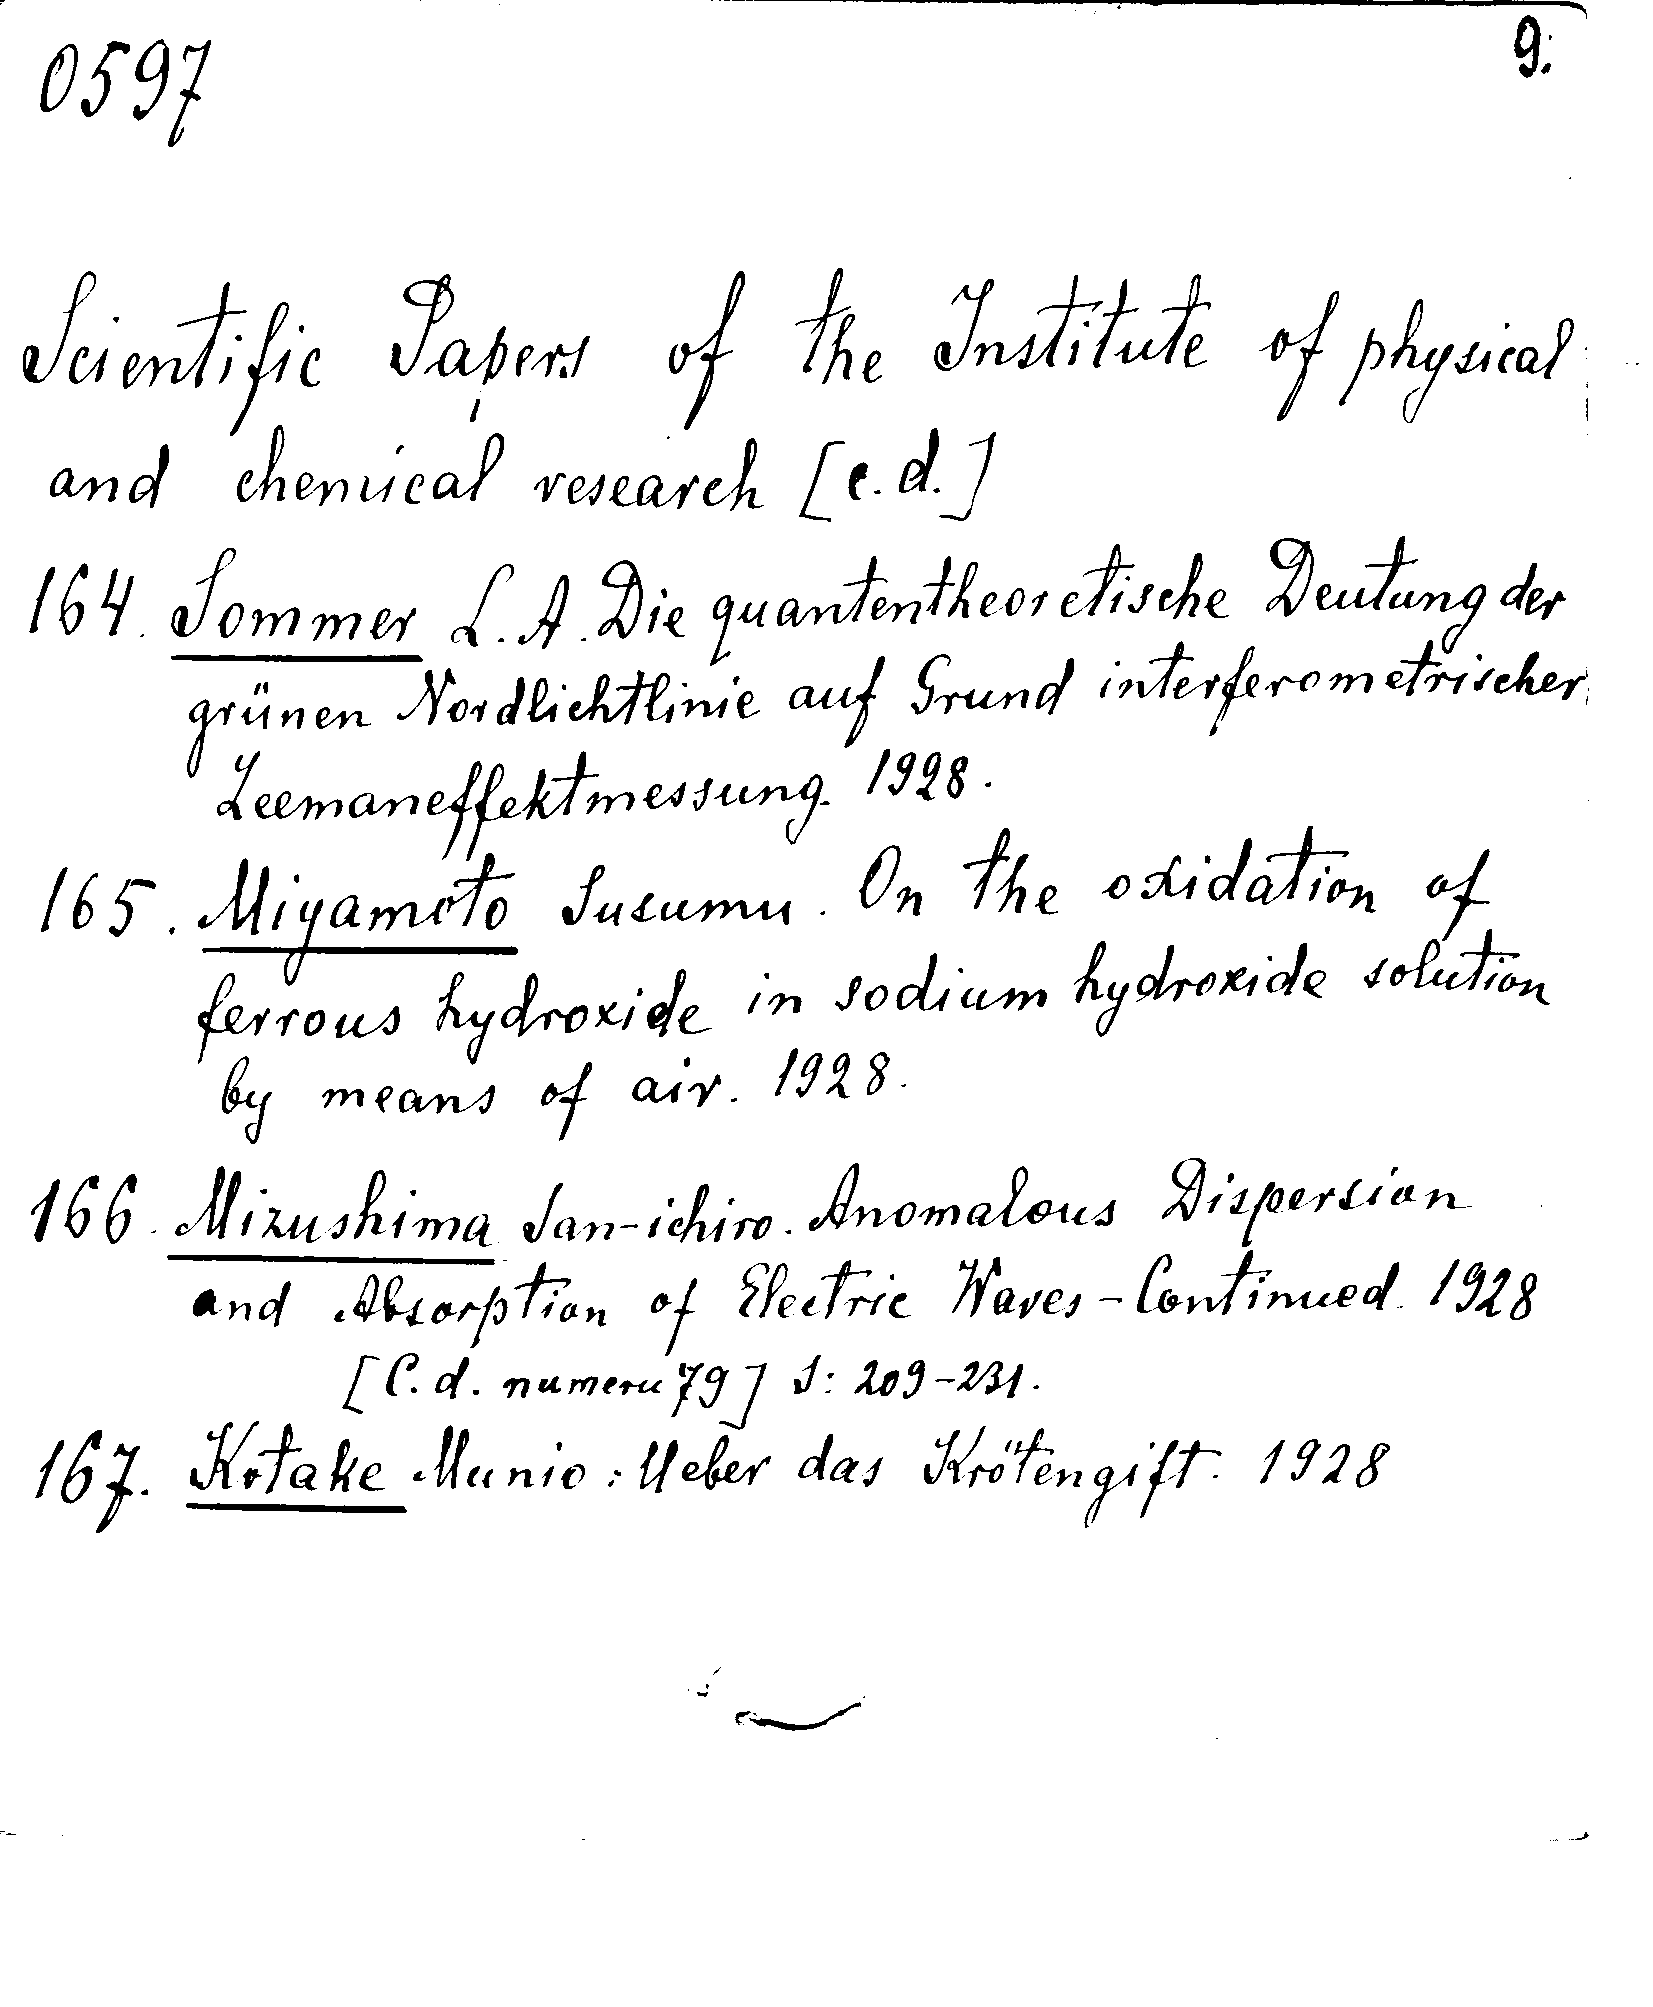 0597
9.
Scientific Papers of the Institute of physical
and chemical research [c.d.]
164. Sommer L. A. Die quantentheoretische Deutung der
grünen Nordlichtlinie auf Grund interferometrischer
Zeemaneffektmessung. 1928.
165. Miyamoto Susumu. On the oxidation of
ferrous hydroxide in sodium hydroxide solution
by means of air. 1928.
166. Mizushima San-ichiro. Anomalous Dispersion
and Absorption of Electric Waves - Continued. 1928
[C.d. numeru 79] S: 209-231.
167. Kotake Munio: Ueber das Krötengift. 1928